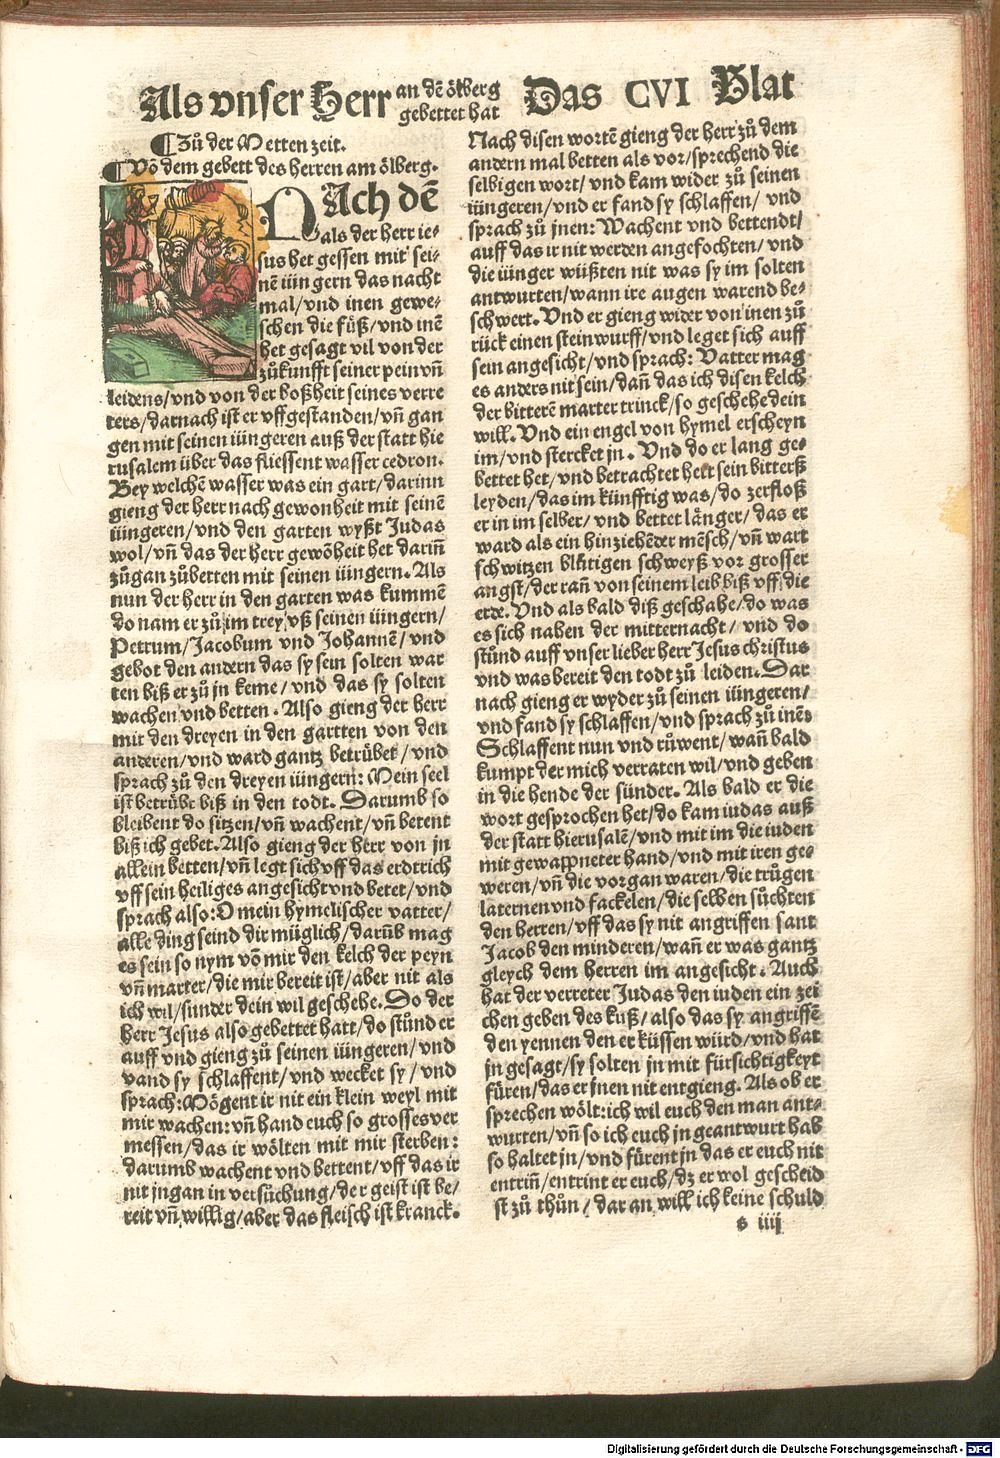 Als vnser Herr an dẽ ölberg gebettet hat Das CVI Blat
¶ Zů der Metten zeit.
¶ Võ dem gebett des herren am ölberg.
NAch dẽ
als der herr ie⸗
sus het gessen mit sei⸗
nẽ iüngern das nacht
mal/vnd inen gewe⸗
schen die füß/vnd inẽ
het gesagt vil von der
zůkunfft seiner pein vñ
leidens/vnd von der boßheit seines verre
ters/darnach ist er vffgestanden/vñ gan
gen mit seinen iüngeren auß der statt hie
rusalem über das fliessent wasser cedron.
Bey welchẽ wasser was ein gart/darinn
gieng der herr nach gewonheit mit seinẽ
iüngeren/vnd den garten wyßt Judas
wol/vñ das der herr gewõheit het dariñ
zůgan zůbetten mit seinen iüngern. Als
nun der herr in den garten was kummẽ
do nam er zů im trey vß seinen iüngern/
Petrum/Jacobum vnd Johannẽ/vnd
gebot den andern das sy sein solten war
ten biß er zů jn keme/vnd das sy solten
wachen vnd betten. Also gieng der herr
mit den dreyen in den gartten von den
anderen/vnd ward gantz betrübet/vnd
sprach zů den dreyen iüngern: Mein seel
ist betrübt biß in den todt. Darumb so
bleibent do sitzen/vñ wachent/vñ betent
biß ich gebet. Also gieng der herr von jn
allein betten/vñ legt sich vff das erdtrich
vff sein heiliges angesicht vnd betet/vnd
sprach also: O mein hymelischer vatter/
alle ding seind dir müglich/darũb mag
es sein so nym võ mir den kelch der peyn
vñ marter/die mir bereit ist/aber nit als
ich wil/sunder dein wil geschehe. Do der
herr Jesus also gebettet hatt/do stůnd er
auff vnd gieng zů seinen iüngeren/vnd
vand sy schlaffent/vnd wecket sy/vnd
sprach: Mögent ir nit ein klein weyl mit
mir wachen: vñ hand euch so grosses ver
messen/das ir wölten mit mir sterben:
darumb wachent vnd bettent/vff das ir
nit jngan in versůchung/der geist ist be/
reit vñ willig/aber das fleisch ist kranck.
Nach disen wortẽ gieng der herr zů dem
andern mal betten als vor/sprechend die
selbigen wort/vnd kam wider zů seinen
iüngeren/vnd er fand sy schlaffen/vnd
sprach zů jnen: Wachent vnd bettendt/
auff das ir nit werden angefochten/vnd
die iünger wüßten nit was sy im solten
antwurten/wann ire augen warend be⸗
schwert. Vnd er gieng wider von inen zů
rück einen steinwurff/vnd leget sich auff
sein angesicht/vnd sprach: Vatter mag
es anders nit sein/dañ das ich disen kelch
der bitterẽ marter trinck/so geschehe dein
will. Vnd ein engel von hymel erscheyn
im/vnd stercket jn. Vnd do er lang ge⸗
bettet het/vnd betrachtet hett sein bitterß
leyden/das im künfftig was/do zerfloß
er in im selber/vnd bettet länger/das er
ward als ein hinziehẽder mẽsch/vñ wart
schwitzen blůtigen schweyß vor grosser
angst/der rañ von seinem leib biß vff die
erde. Vnd als bald diß geschahe/do was
es sich nahen der mitternacht/vnd do
stůnd auff vnser lieber herr Jesus christus
vnd was bereit den todt zů leiden. Dar
nach gieng er wyder zů seinen iüngeren/
vnd fand sy schlaffen/vnd sprach zů inẽ:
Schlaffent nun vnd růwent/wañ bald
kumpt der mich verraten wil/vnd geben
in die hende der sünder. Als bald er die
wort gesprochen het/do kam iudas auß
der statt hierusalẽ/vnd mit im die iuden
mit gewappneter hand/vnd mit iren ge⸗
weren/vñ die vorgan waren/die trůgen
laternen vnd fackelen/die selben sůchten
den herren/vff das sy nit angriffen sant
Jacob den minderen/wañ er was gantz
gleych dem herren im angesicht. Auch
hat der verreter Judas den iuden ein zei
chen geben des kuß/also das sy angriffẽ
den yennen den er küssen würd/vnd hat
jn gesagt/sy solten jn mit fürsichtigkeyt
füren/das er jnen nit entgieng. Als ob er
sprechen wölt: ich wil euch den man ant⸗
wurten/vñ so ich euch jn geantwurt hab
so haltet jn/vnd fürent jn das er euch nit
entriñ/entrint er euch/dz er wol gescheid
ist zů thůn/dar an will ich keine schuld
s iiij
Digitalisierung gefördert durch die Deutsche Forschungsgemeinschaft - DFG